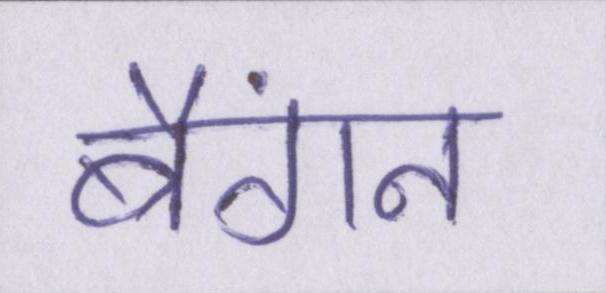 बैंगन